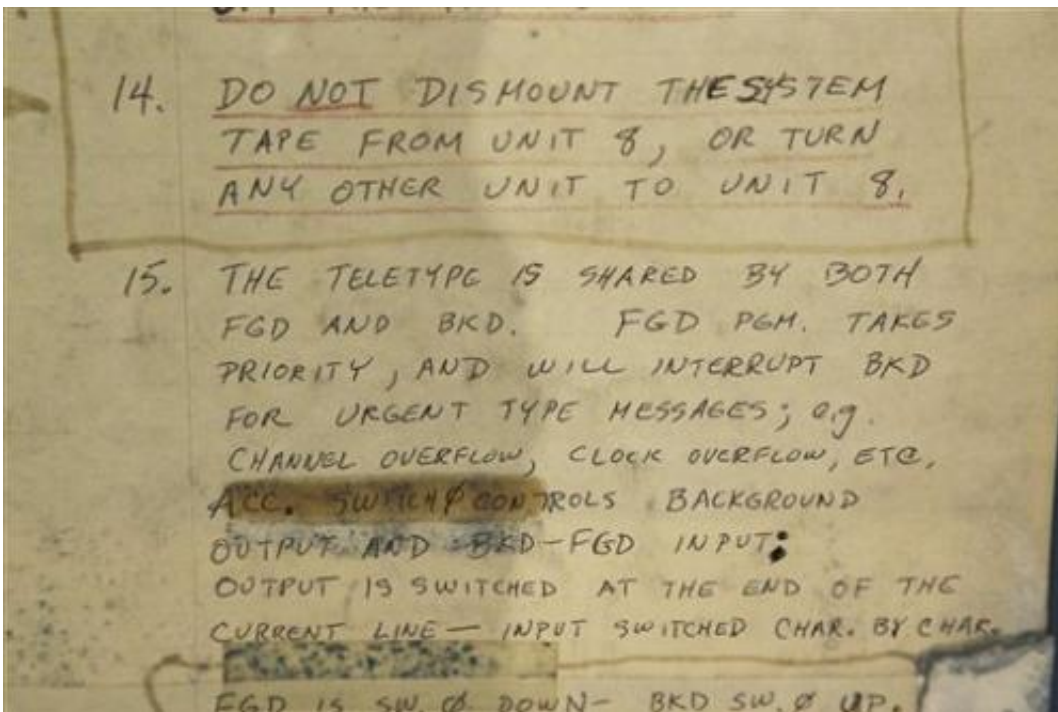 14. DO NOT DISMOUNT THE SYSTEM
TAPE FROM UNIT 8, OR TURN
ANY OTHER UNIT TO UNIT 8.
15. THE TELETYPE IS SHARED BY BOTH
FGD AND BKD. FGD PGM. TAKES
PRIORITY, AND WILL INTERRUPT BKD
FOR URGENT TYPE MESSAGES; e.g.
CHANNEL OVERFLOW, CLOCK OVERFLOW, ETC.
ACC. SWITCH Ø CONTROLS BACKGROUND
OUTPUT AND BKD-FGD INPUT:
OUTPUT IS SWITCHED AT THE END OF THE
CURRENT LINE — INPUT SWITCHED CHAR. BY CHAR.
FGD IS SW. Ø DOWN- BKD SW. Ø UP.